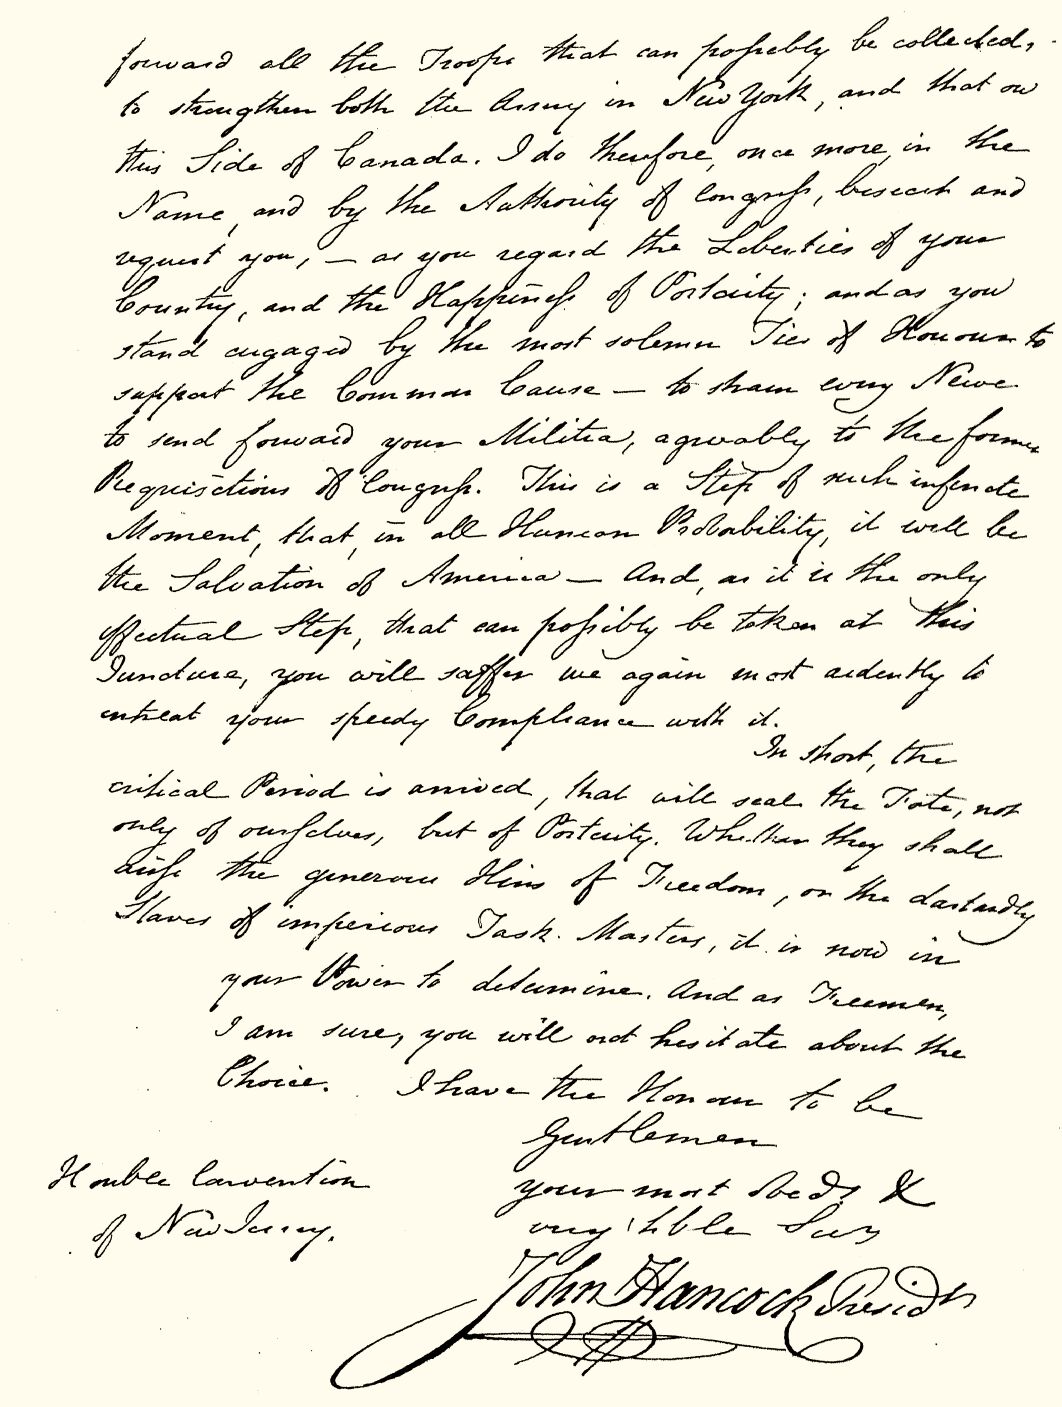 forward all the Troops that can possibly be collected,
to strengthen both the Army in New York, and that on
this Side of Canada. I do therefore, once more, in the
Name, and by the Authority of Congress, beseech and
request you, — as you regard the Liberties of your
Country, and the Happiness of Posterity; and as you
stand engaged by the most solemn Ties of Honour to
support the Common Cause — to strain every Nerve
to send forward your Militia, agreeably to the former
Requisitions of Congress. This is a Step of such infinite
Moment, that, in all Human Probability, it will be
the Salvation of America — And, as it is the only
effectual Step, that can possibly be taken at this
Juncture, you will suffer me again most ardently to
entreat your speedy Compliance with it.
In short, the
critical Period is arrived, that will seal the Fate, not
only of ourselves, but of Posterity. Whether they shall
arise the generous Heirs of Freedom, or the dastardly
Slaves of imperious Task-Masters, it is now in
your Power to determine. And as Freemen,
I am sure, you will not hesitate about the
Choice. I have the Honour to be
Gentlemen
your most obedt. &
very hble Ser
Honble Convention
of New Jersey.
John Hancock Presidt